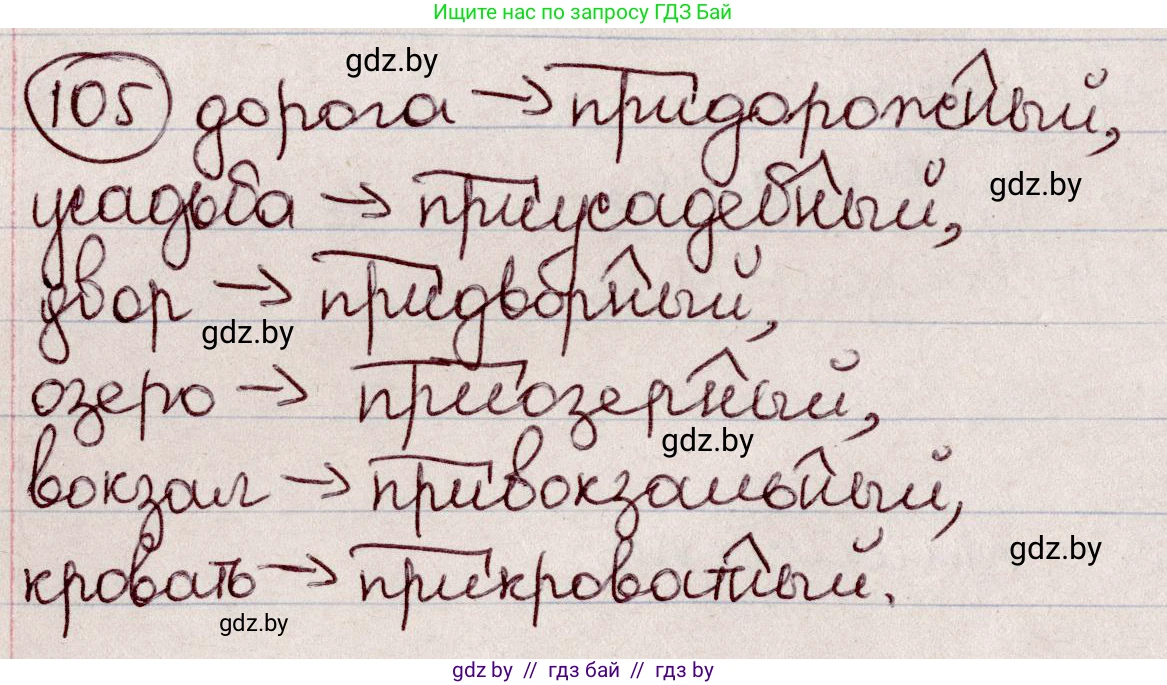 Ищите нас по запросу ГДЗ Бай
gdz.by
105 дорога → придорожный,
усадьба → приусадебный,
gdz.by
двор → придворный,
gdz.by
озеро → приозерный,
gdz.by
вокзал → привокзальный,
gdz.by
кровать → прикроватный.
gdz.by
gdz.by // гдз бай // гдз by